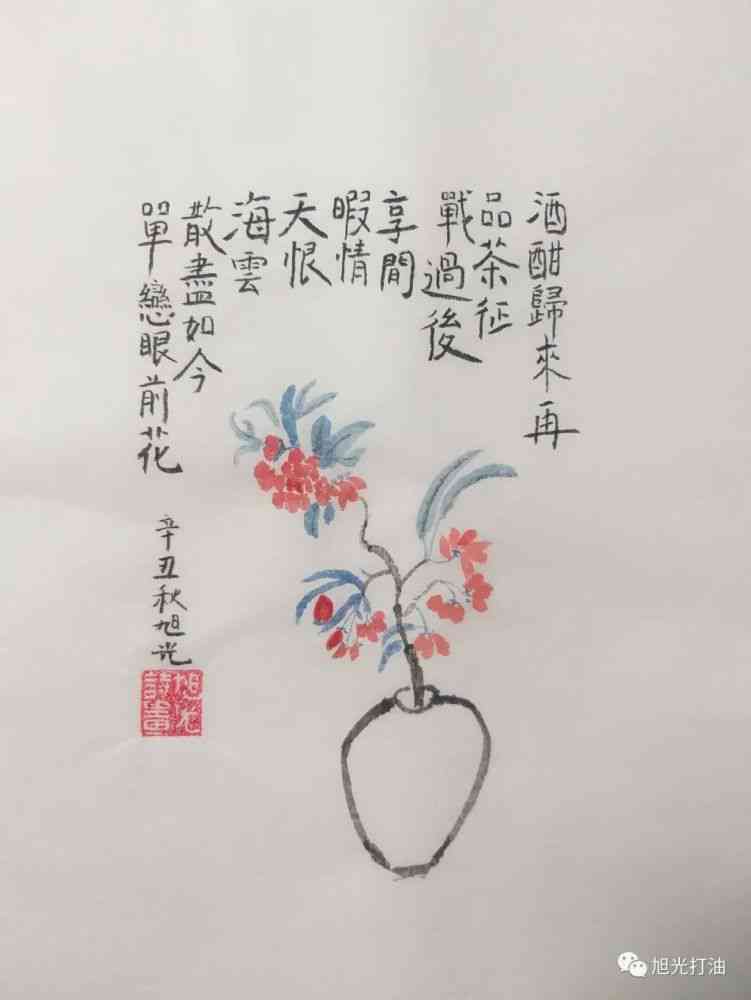 酒酣歸來再
品茶征
戰過後
享閒
暇情
天恨
海雲
散盡如今
單戀眼前花
辛丑秋旭光
旭光
詩畫
旭光打油